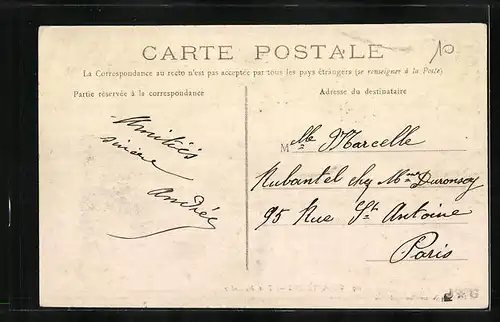 CARTE POSTALE
10
La Correspondance au recto n'est pas acceptée par tous les pays étrangers (se renseigner à la Poste)
Partie réservée à la correspondance
Adresse du destinataire
Amitiés
sincère
Andrée
Melle Marcelle
Rubantel chez Mme
95 Rue St. Antoine
Paris